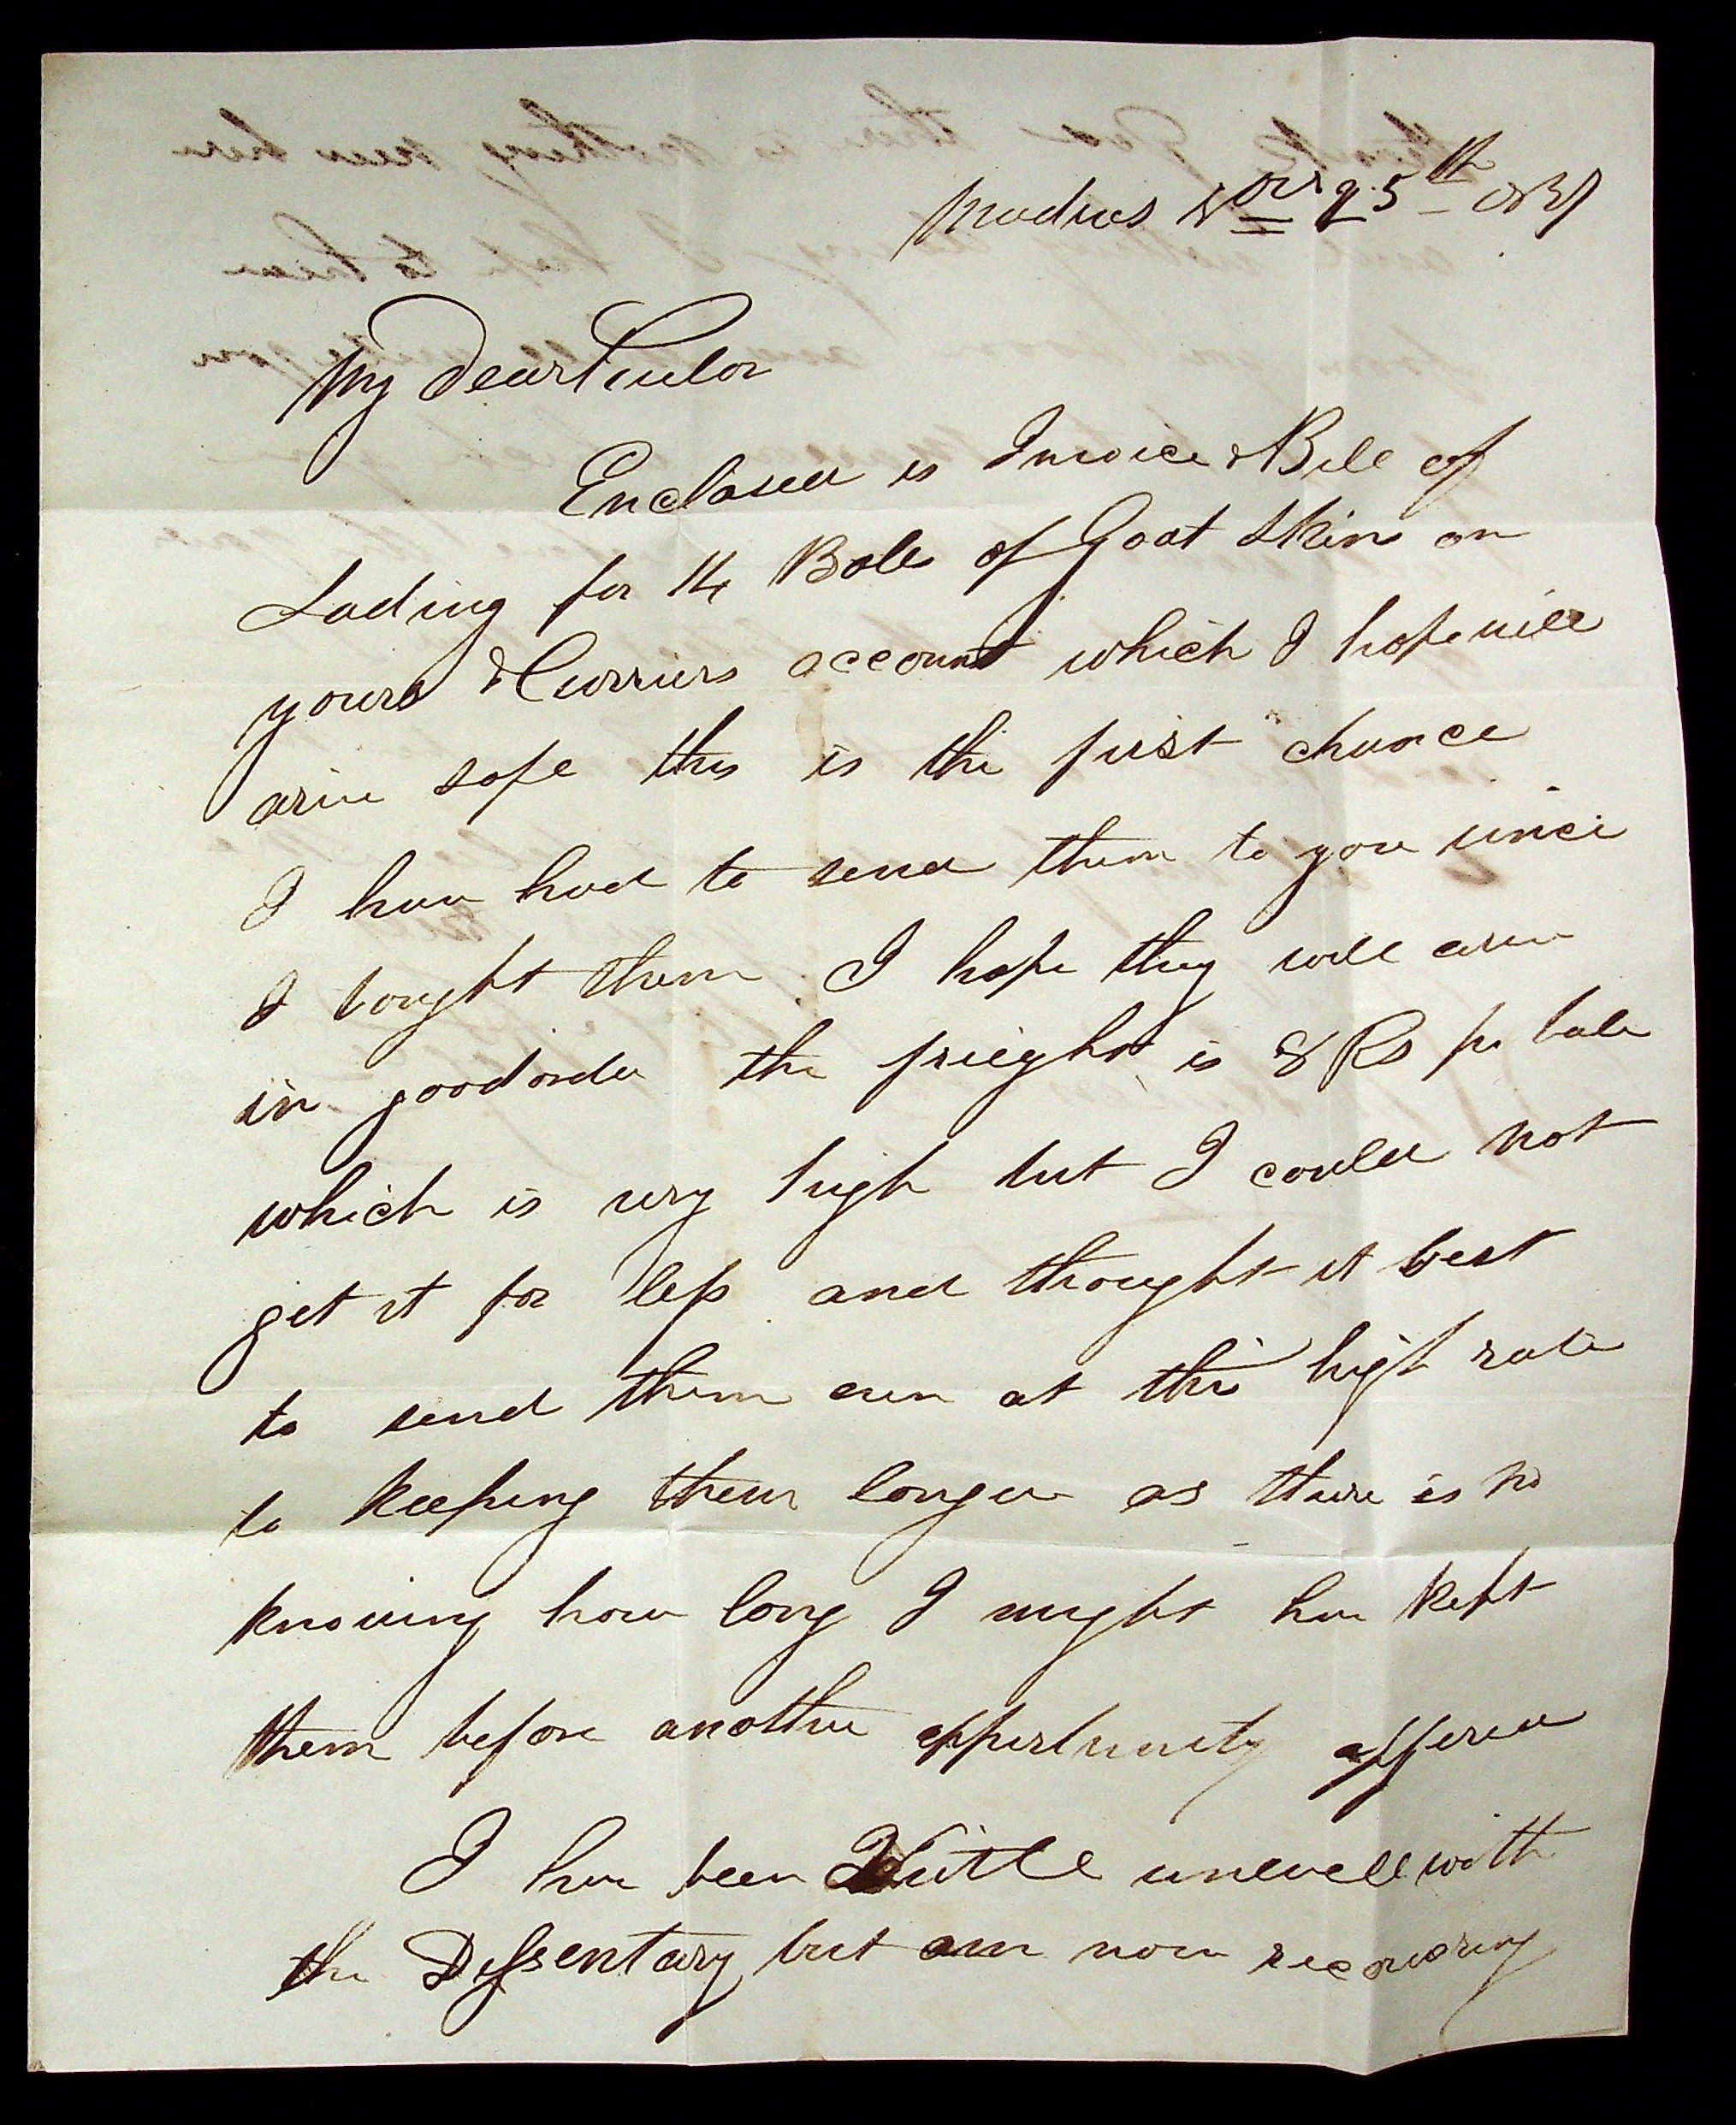 Madras 25th
My Dear
Enclosed is Invoice & Bill of
Lading for 14 Bale of Goat Skins on
yours & Curriers account which I hope will
arive safe this is the first chance
I have had to send them to you since
I bought them I hope they will arive
in good order the frieght is 8 Rs pr bale
which is very high but I could not
get it for less and thought it best
to send them even at this high rate
to keeping them longer as there is no
knowing how long I might have kept
them before another oppertunity offered
I have been little unwell with
the Dyssentary but am now recovering